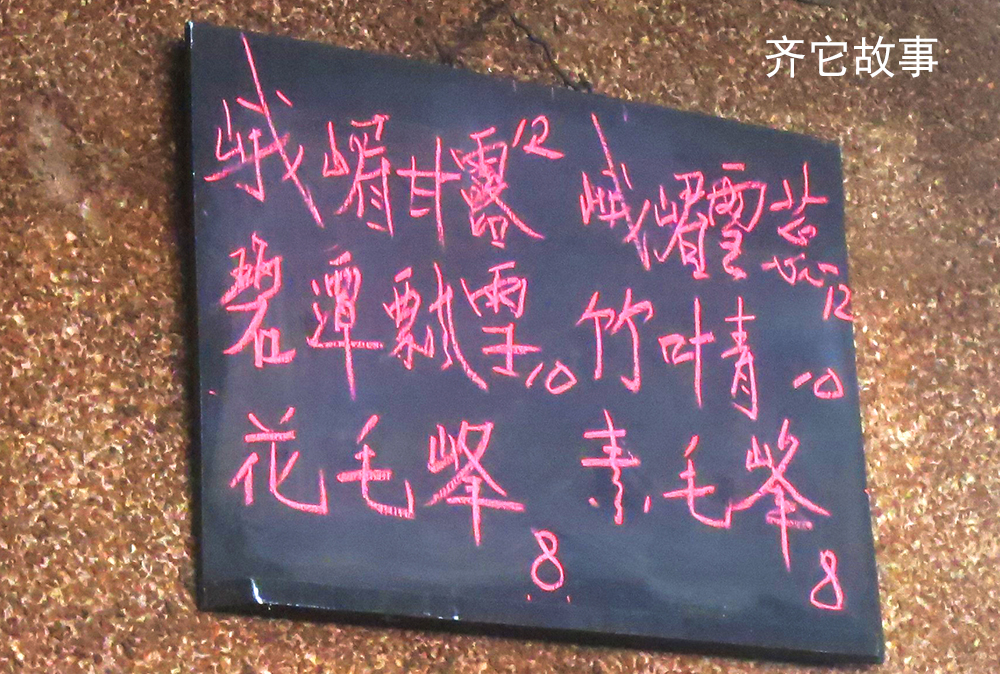 齐它故事
峨嵋甘露12
峨嵋雪蕊12
碧潭飘雪10
竹叶青10
花毛峰8
素毛峰8